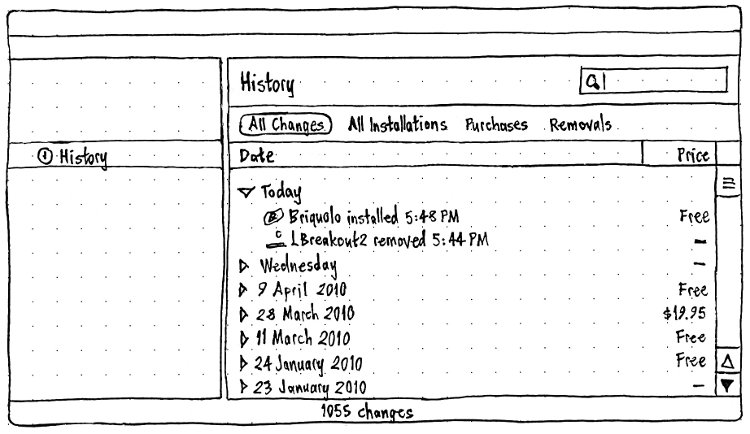 History
All Changes All Installations Purchases Removals
History
Date Price
Today
Briquolo installed 5:48 PM Free
LBreakout2 removed 5:44 PM –
Wednesday –
9 April 2010 Free
28 March 2010 $19.95
11 March 2010 Free
24 January 2010 Free
23 January 2010 –
1055 changes